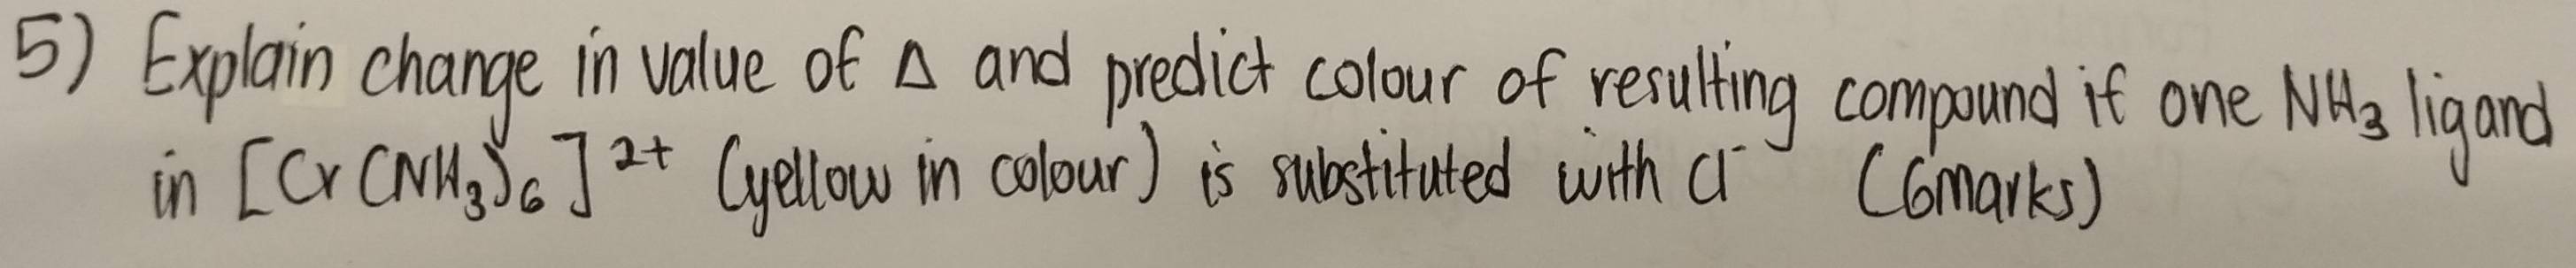 5) Explain change in value of Δ and predict colour of resulting compound if one NH₃ ligand
in [Cr(NH₃)₆]²⁺ (yellow in colour) is substituted with Cl⁻ (6marks)